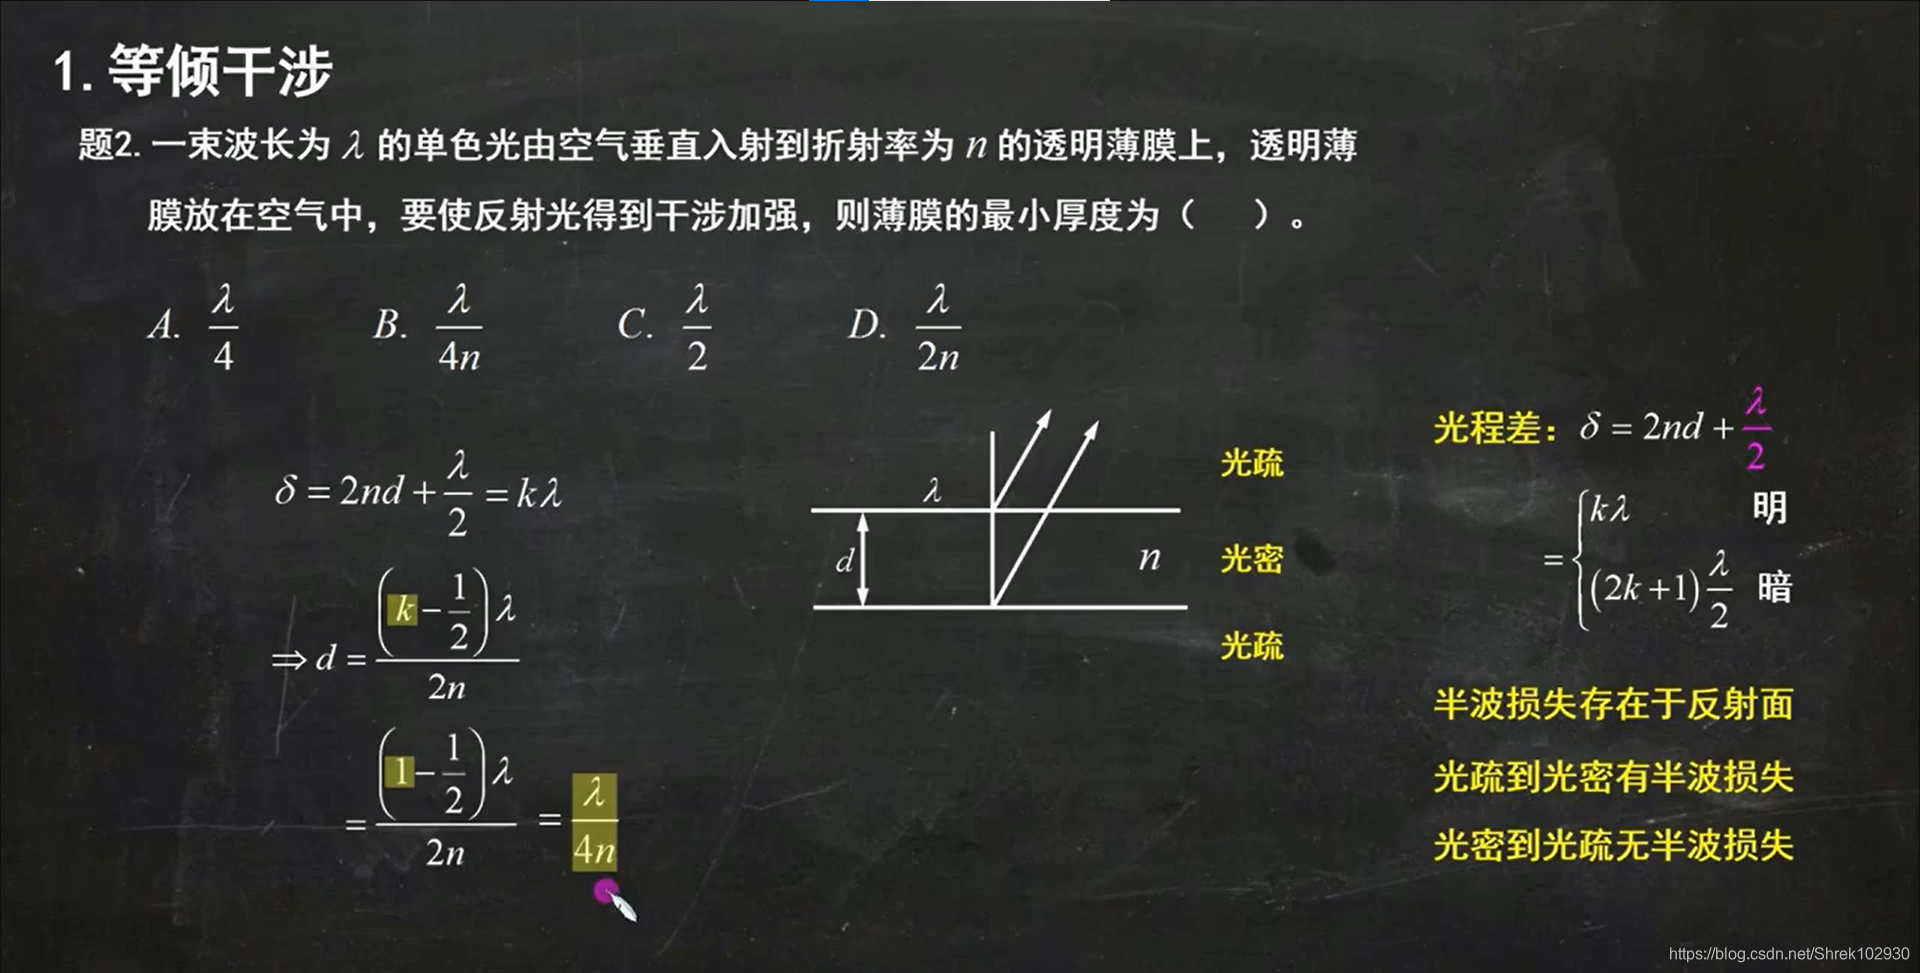 1. 等倾干涉
题2. 一束波长为 λ 的单色光由空气垂直入射到折射率为 n 的透明薄膜上，透明薄
膜放在空气中，要使反射光得到干涉加强，则薄膜的最小厚度为（ ）。
A. λ/4 B. λ/4n C. λ/2 D. λ/2n
δ = 2nd + λ/2 = kλ
⇒ d = (k − 1/2)λ / 2n
= (1 − 1/2)λ / 2n = λ/4n
λ
d
n
光疏
光密
光疏
光程差：δ = 2nd + λ/2
= { kλ 明
(2k+1) λ/2 暗
半波损失存在于反射面
光疏到光密有半波损失
光密到光疏无半波损失
https://blog.csdn.net/Shrek102930